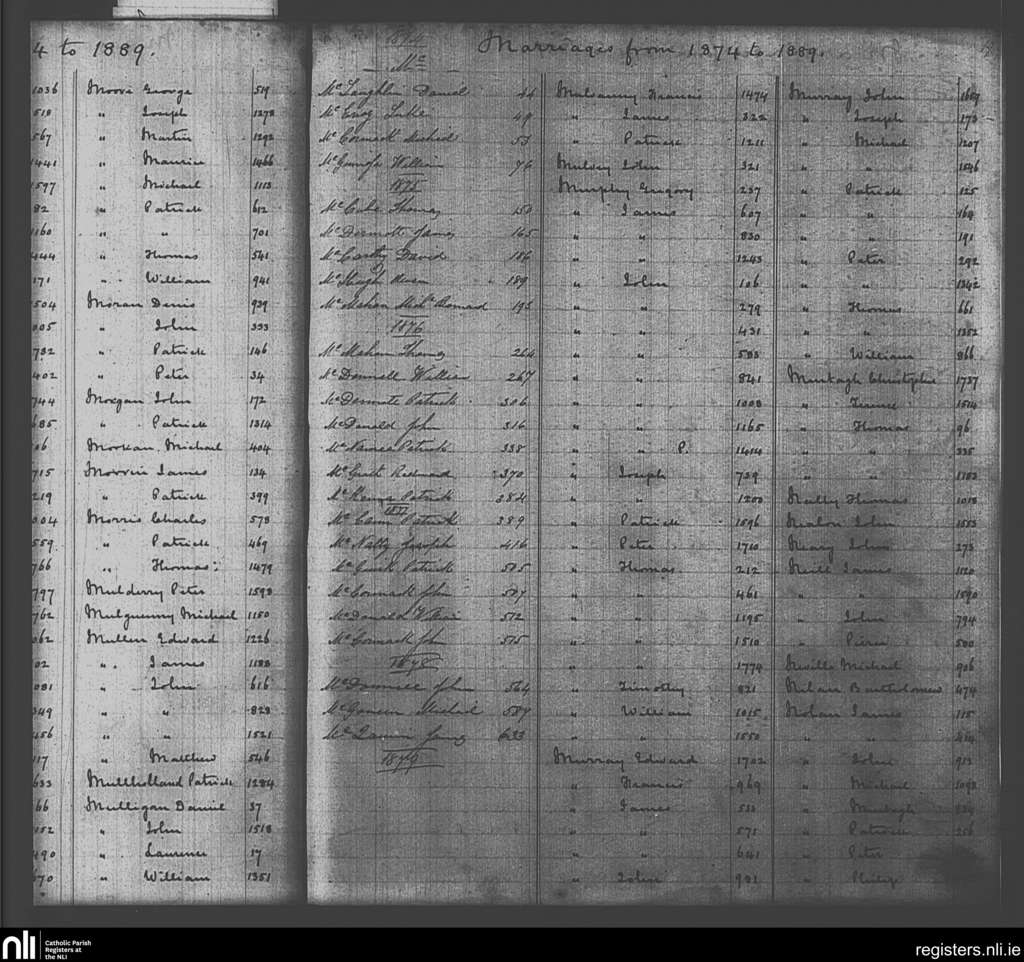 4 to 1889.
1036 Moore George 519
510 " Joseph 1278
567 " Martin 1292
1441 " Maurice 1466
1597 " Michael 1113
82 " Patrick 612
1160 " " 701
444 " Thomas 541
171 " William 941
504 Moran Denis 929
005 " John 333
732 " Patrick 146
402 " Peter 34
744 Morgan John 172
685 " Patrick 1314
06 Morkan Michael 404
715 Morrin James 134
219 " Patrick 399
004 Morris Charles 573
559 " Patrick 469
766 " Thomas 1479
797 Mulderry Peter 1598
762 Mulgunny Michael 1150
062 Mullen Edward 1226
02 " James 1188
081 " John 616
349 " " 828
456 " " 1521
117 " Matthew 546
633 Mullholland Patrick 1284
66 Mulligan Daniel 37
152 " John 1518
490 " Laurence 17
670 " William 1351
Marriages from 1874 to 1889.
1874
Mc
McLaughlin Daniel 44
McEvoy Luke 49
McCormack Michael 53
William 76
1875
McCabe Thomas 150
McDermott James 165
McCarthy David 186
McHugh Owen 189
McMahon 195
1876
McMahon Thomas 264
McDonnell William 267
McDermott Patrick 306
McDonald John 316
McNamee Patrick 338
370
Patrick 384
1877
McCann Patrick 389
McNally Joseph 416
Patrick 505
McCormack John 507
McDonald William 572
McCormack John 575
1878
John 564
Michael 589
James 633
1879
Mulvanny Francis 1474
" James 322
" Patrick 1211
Mulvey John 321
Murphy Gregory 237
" James 607
" " 830
" " 1243
" John 106
" " 279
" " 431
" " 583
" " 841
" " 1008
" " 1165
" " P. 1414
" Joseph 739
" " 1200
" Patrick 1596
" Peter 1710
" Thomas 212
" " 461
" " 1195
" " 1510
" " 1774
" Timothy 821
" William 1015
" " 1550
Murray Edward 1702
" Francis 969
" James 533
" " 571
" " 641
" John 901
Murray John 1669
" Joseph 173
" Michael 1207
" " 1546
" Patrick 125
" " 164
" " 191
" Peter 292
" " 1342
" Thomas 661
" " 1352
" William 866
Murtagh Christopher 1737
" 1514
" Thomas 96
" " 335
" " 1183
Nally Thomas 1018
Nealon John 1553
Neary John 273
Neill James 1120
" " 1590
" John 794
" Pierce 500
Neville Michael 906
Nolan Bartholomew 474
Nolan James 115
" " 414
" John 913
" Michael 1093
" 
" Patrick 256
" Peter
" Philip
nli Catholic Parish
Registers at
the NLI
registers.nli.ie